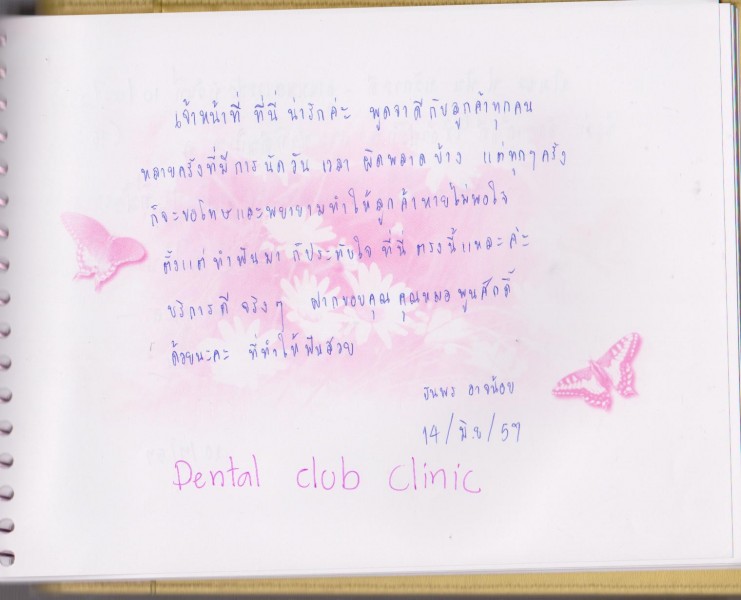 เจ้าหน้าที่ ที่นี่ น่ารักค่ะ พูดจาดีกับลูกค้าทุกคน
หลายครั้งที่มีการนัดวัน เวลา ผิดพลาดบ้าง แต่ทุกๆครั้ง
ก็จะขอโทษและพยายามทำให้ลูกค้าหายไม่พอใจ
ตั้งแต่ทำฟันมา ก็ประทับใจ ที่นี่ ตรงนี้แหละค่ะ
บริการดี จริงๆ ฝากขอบคุณ คุณหมอพูนศักดิ์
ด้วยนะคะ ที่ทำให้ฟันสวย
ธนพร อาจน้อย
14/มิ.ย/57
Dental club clinic